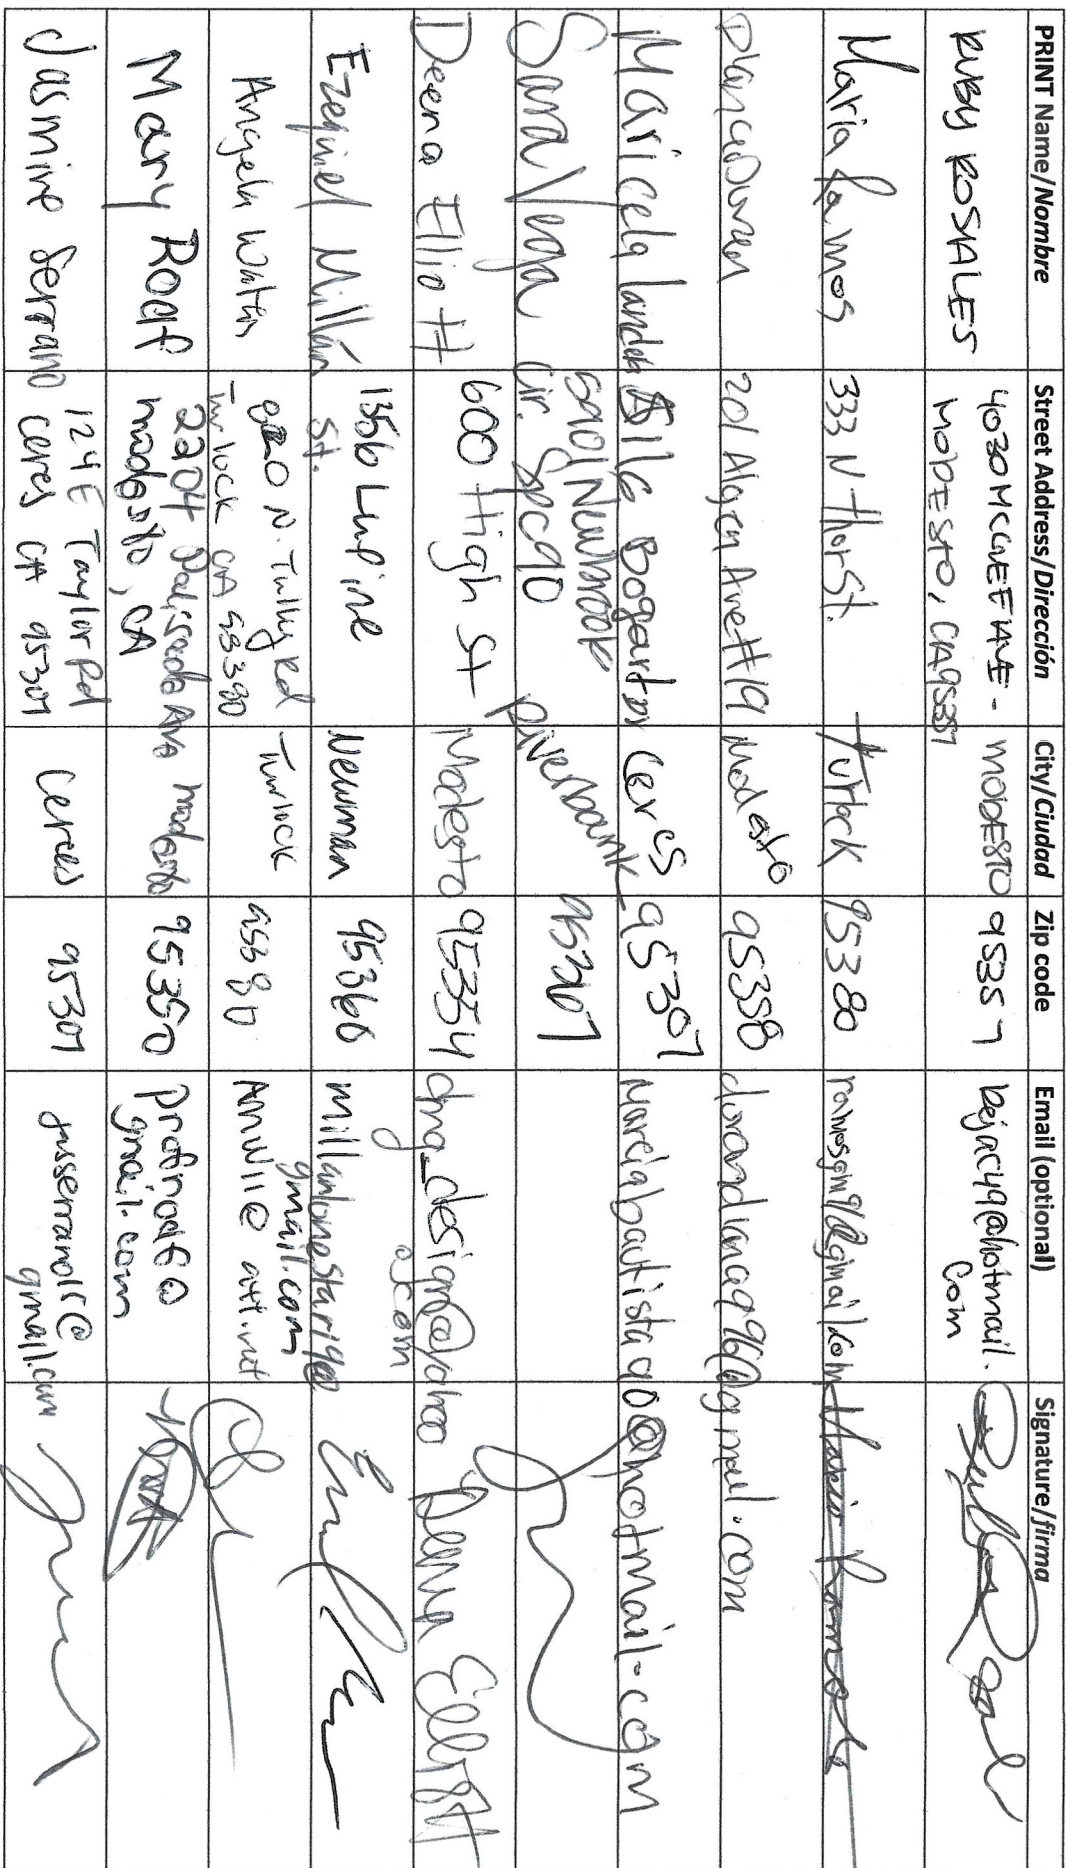 PRINT Name/Nombre Street Address/Dirección City/Ciudad Zip code Email (optional) Signature/firma
RUBY ROSALES 4030 MCGUEE AVE - MODESTO, CA 95357 MODESTO 95357 bejac49@hotmail.com
Maria Ramos 333 N thor St. Turlock 95380 ramosgm91@gmail.com Maria Ramos
201 Algen Ave #19 Modesto 95358 dorandiana996@gmail.com
Maricela Landa Bogart Dr Ceres 95307 marciabautista90@hotmail.com
Sara Vega 5901 Newbrook Cir. Spc90 Riverbank
Deena Elliott 600 High St Modesto 95354 dmg_design@yahoo.com Deena Elliott
Ezequiel Millán 1356 Lupine St. Newman 95360 millanlonestar14@gmail.com
Angela N. Tully Rd Turlock CA 95380 Turlock 95380 Amw11@att.net
Mary Roaf 2204 Palisade Ave modesto, CA modesto 95350 profroaf6@gmail.com
Jasmine Serrano 124 E Taylor Rd ceres CA 95307 Ceres 95307 jusserrano15@gmail.com